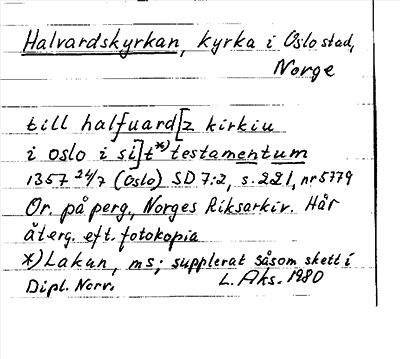 Halvardskyrkan, kyrka i Oslo stad,
Norge
till halfuard[z kirkiu
i oslo i si]t*) testamentum
1357 24/7 (Oslo) SD 7:2, s. 221, nr 5779
Or. på perg., Norges Riksarkiv. Här
återg. eft. fotokopia
*) Lakun, ms; supplerat såsom skett i
Dipl. Norv.
L. Aks. 1980